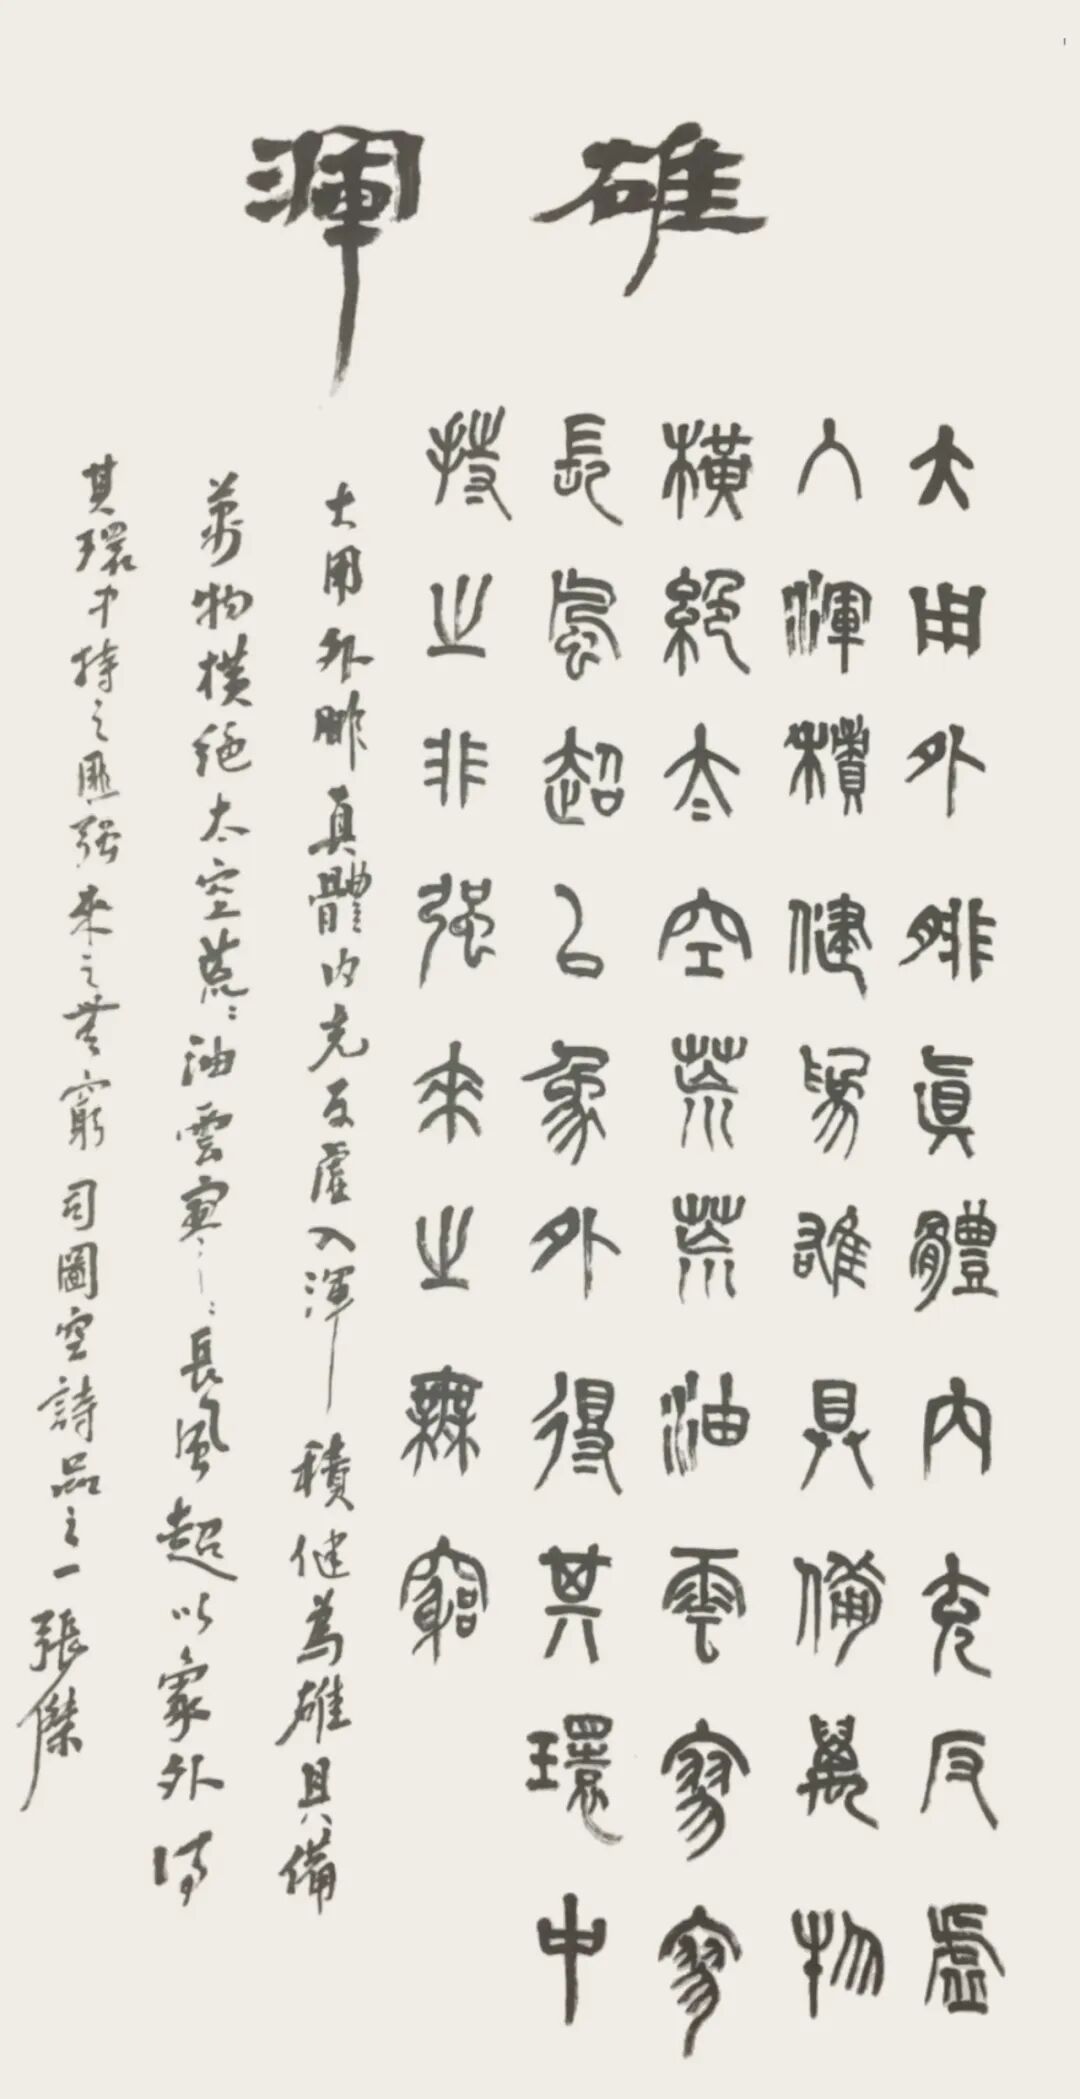 雄渾
大用外腓眞體内充反虛
入渾積健為雄具備萬物
橫絕太空荒荒油雲寥寥
長風超以象外得其環中
持之非強來之無窮
大用外腓真體内充反虛入渾積健為雄具備
萬物橫絕太空荒〻油雲寥〻長風超以象外得
其環中持之匪強來之無窮司圖空詩品之一張傑